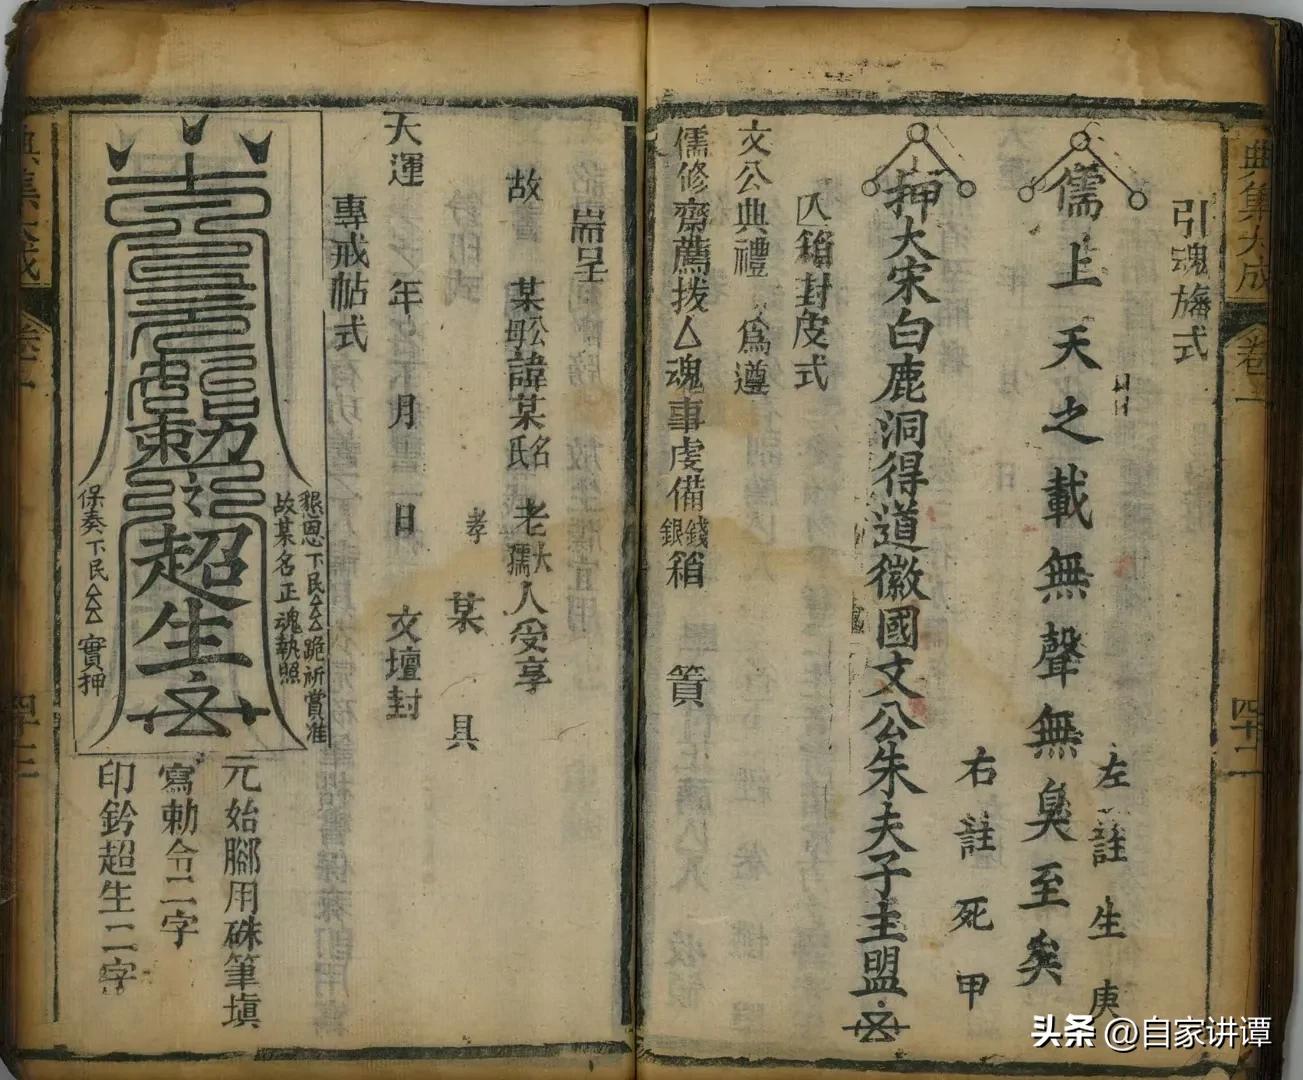 典集大成
卷二
四十二
引魂旛式
左註生庚
儒上天之載無聲無臭至矣
右註死甲
押大宋白鹿洞得道徽國文公朱夫子主盟
囚箱封皮式
文公典禮爲遵
儒修齋薦拔厶魂事虔備錢銀箱
箕
耑呈
故某公母諱某名氏老大孺人受享
孝某具
天運年月日文壇封
專戒帖式
懇恩下民厶厶跪祈賞准
故某名正魂執照
超生
保奏下民厶厶實押
元始腳用硃筆填
寫勅令二字
印鈐超生二字
典集大成
头条 @自家讲谭